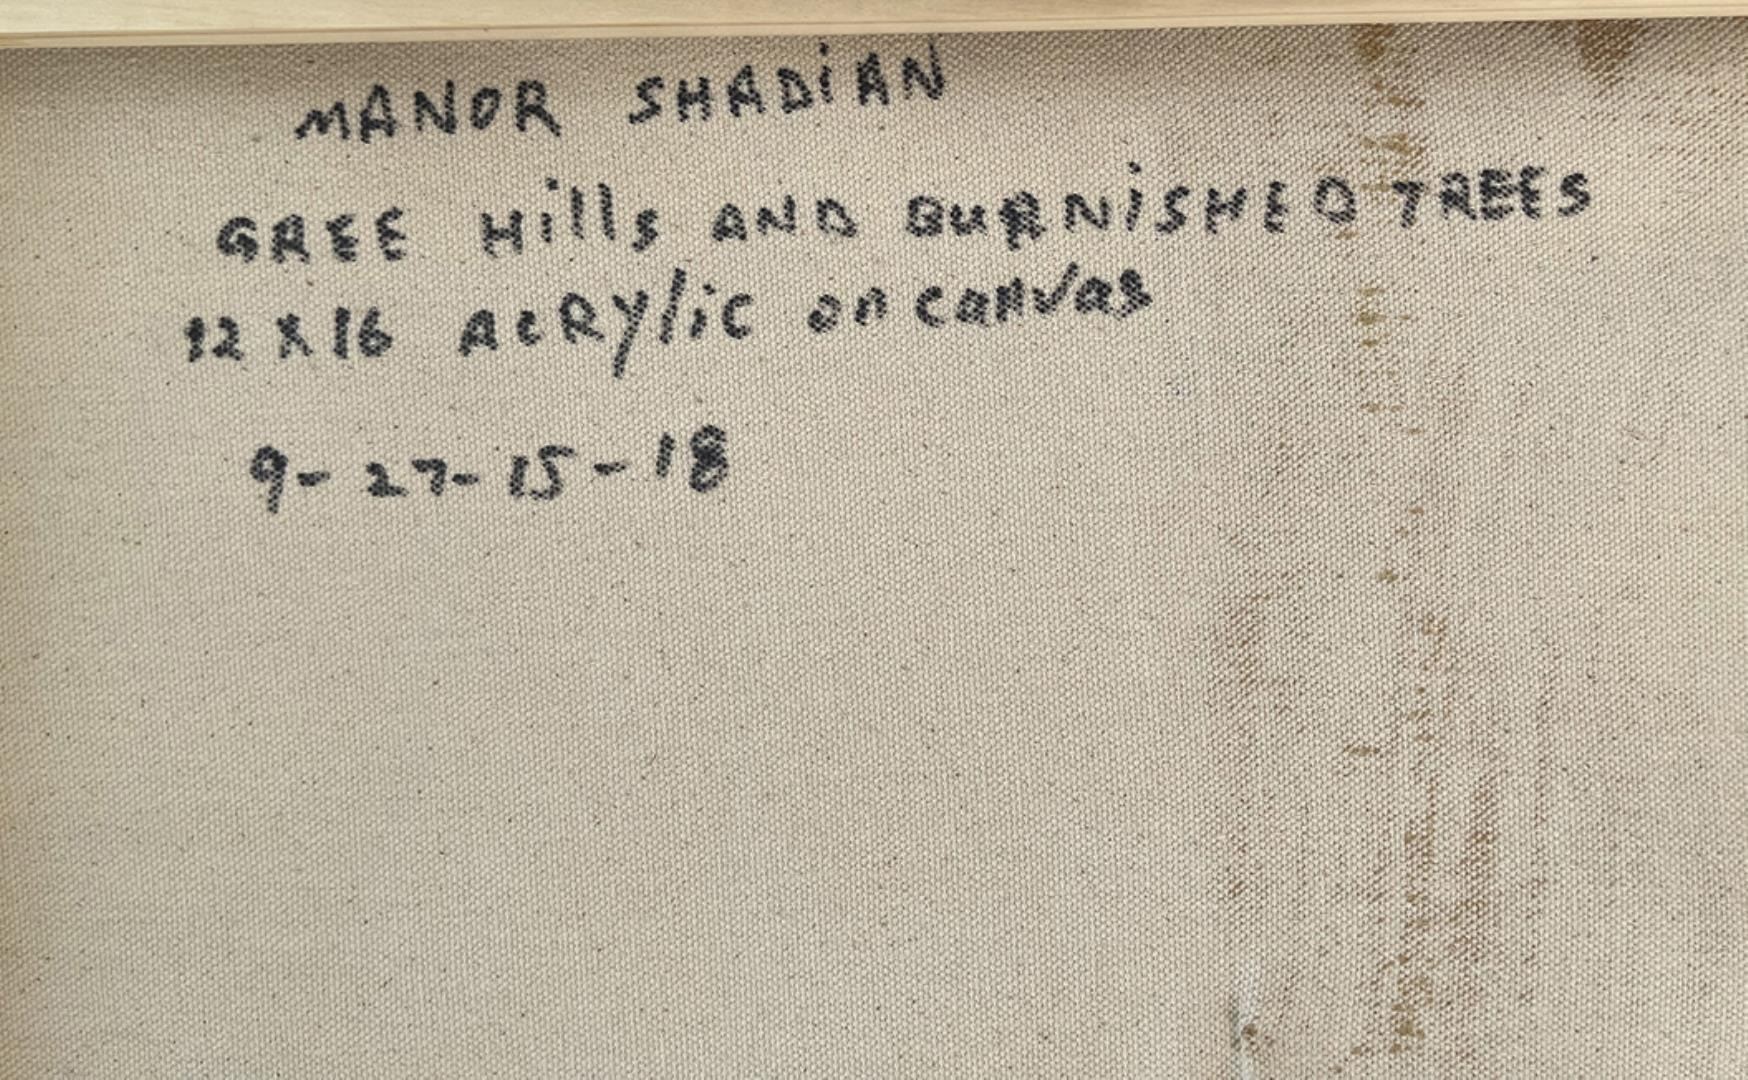 MANOR SHADiAN
GREE Hills AND BURNiSHED TREES
12 X 16 ACRylic on canvas
9-27-15-18